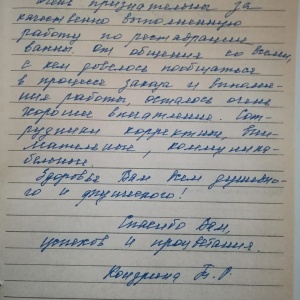 очень признательны за
качественно выполненную
работу по реставрации
ванны, от общения со всеми,
с кем довелось пообщаться
в процессе заказа и выполне-
ния работы, осталось очень
хорошее впечатление. Сот-
рудники корректны, вни-
мательные, коммуника-
бельные.
Здоровья Вам всем душевно-
го и физического!
Спасибо Вам,
успехов и процветания.